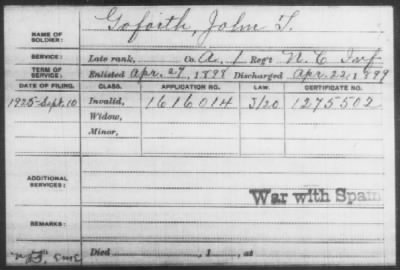 NAME OF SOLDIER: Goforth, John T.
SERVICE: Late rank, Co. A, 1 Reg't N.C. Inf
TERM OF SERVICE: Enlisted Apr. 27, 1898 Discharged Apr. 22, 1899
DATE OF FILING. CLASS. APPLICATION NO. LAW. CERTIFICATE NO.
1925-Sept. 10 Invalid, 1616014 3/20 1275502
Widow,
Minor,
ADDITIONAL SERVICES:
War with Spain
REMARKS:
Died , 1 , at